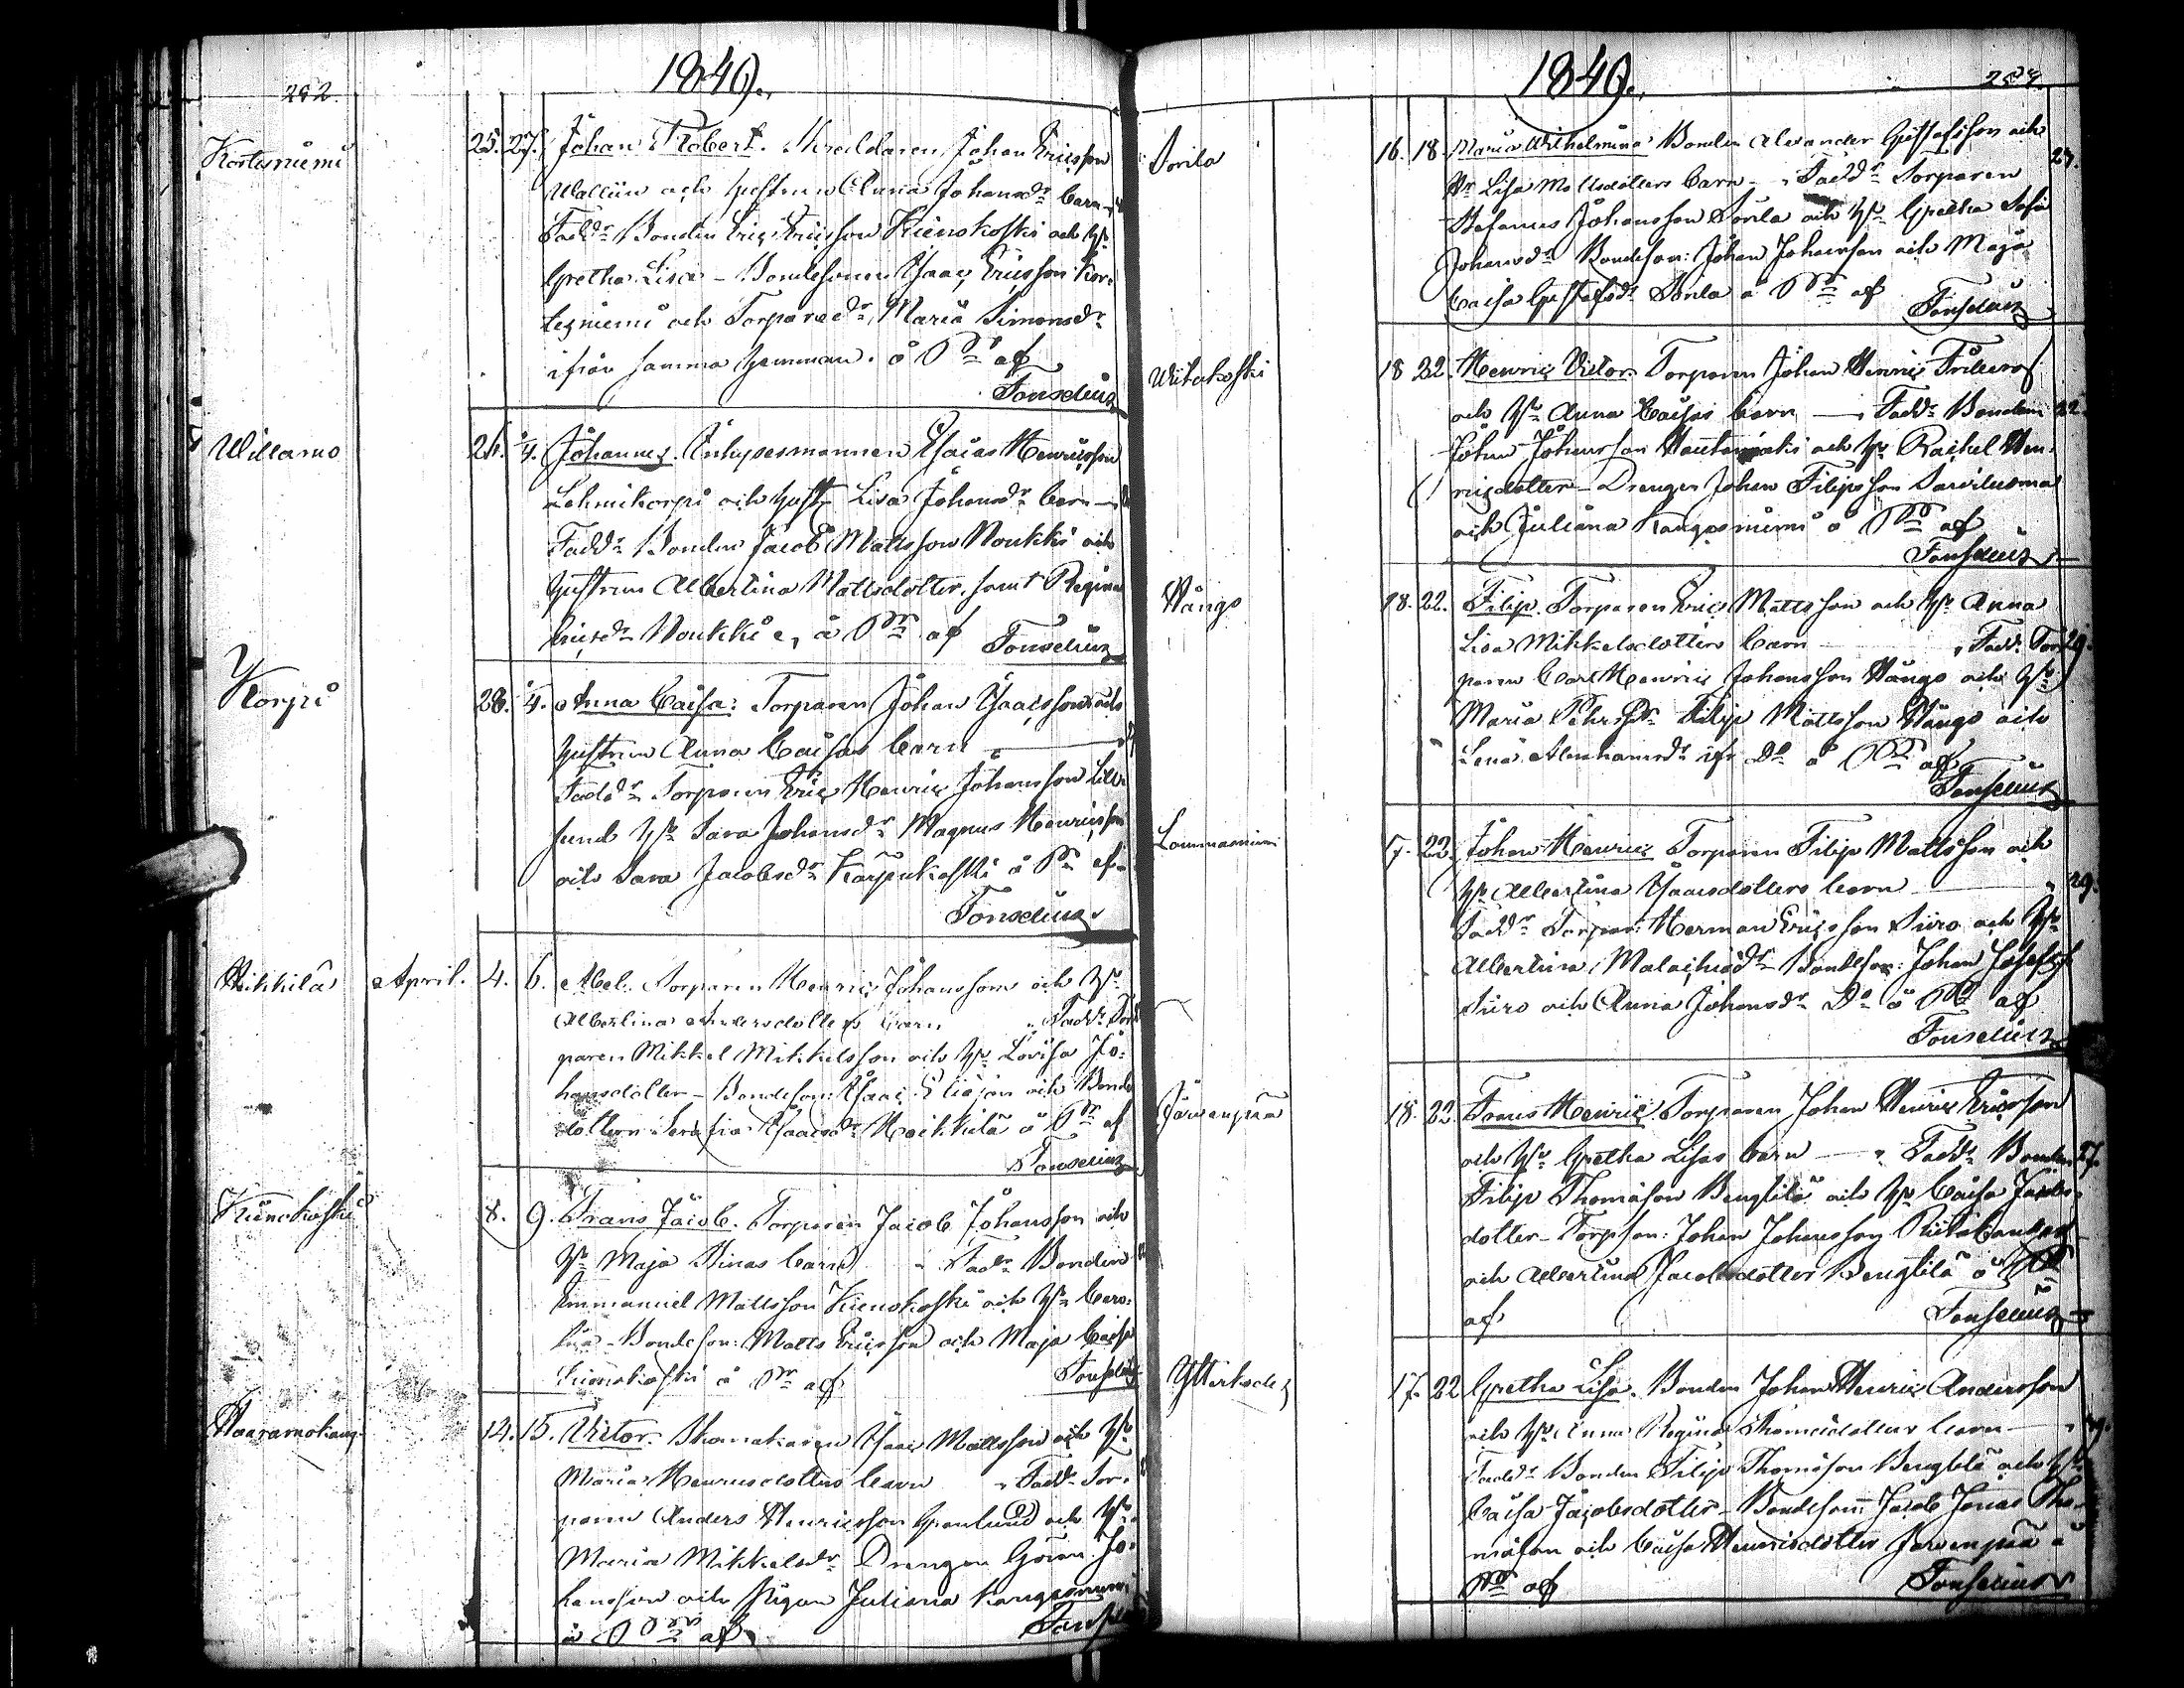 252.
1849.
Kortesniemi
25. 27. Johan Robert. Skräddaren Johan Ericsson
Wallin och hustrun Anna Johansdr barn
Fadd: Bonden Eric Ericsson Kienokoski och H:
Gretha Lisa - Bondesonen Isaac Ericsson Kor-
tesniemi och Torparedr Maria Simonsdr
ifrån samma hemman. å Pr af
Fonselius
Willamo
26. 1/4. Johannes. Inhysesmannen Esaias Henricsson
Lehmikorpi och hust. Lisa Johansdr barn
Fadd: Bonden Jacob Mattsson Noukki och
hustrun Albertina Mattsdotter, samt Regina
Ericsdr Noukki å Pr af Fonselius
Korpi
28. 1/4. Anna Caisa. Torparen Johan Isacsson och
hustrun Anna Caisas barn
Fadd: Torparen Eric Henric Johansson Lill-
sund H: Sara Johansdr Magnus Henricsson
och Sara Jacobsdr Karpukoski å Pr af
Fonselius
Heikkilä April. 4. 6. Abel. Torparen Henric Johansson och H:
Albertina Andersdotters barn Fadd: Tor-
paren Mikkel Mikkelsson och H: Lovisa Jo-
hansdotter - Bondeson: Isaac Eliasson och Bonde
dottern Serafia Isaacsdr Heikkilä å Pr af
Fonselius
Kienokoski
8. 9. Frans Jacob. Torparen Jacob Johansson och
H: Maja Stinas barn Fadd: Bonden
Emmanuel Mattsson Kienokoski och H: Caro-
lina - Bondeson: Matts Ericsson och Maja Caisa
Kienokoski å Pr af Fonselius
14. 15. Victor. Skomakaren Isaac Mattsson och H:
Maria Henricsdotters barn Fadd: Tor-
paren Anders Henricsson Granlund och H:
Maria Mikkelsdr Drengen Göran Jo-
hansson och Pigan Juliana Kangasniemi
å Pr af Fonselius
1849.
Sorila
16. 18. Maria Wilhelmina Bonden Alexander Gustafsson och
H: Lisa Mattsdotters barn - Fadd: Torparen
Stefanus Johansson Sorila och H: Gretha Sofia
Johansdr Bondeson: Johan Johansson och Maja
Caisa Gustafsdr Sorila å Pr af Fonselius
Wiitakoski
18 22. Henric Victor. Torparen Johan Henric
och H: Anna Caisas barn Fadd: Bonden 22
Johan Johansson och H: Rachel Hen-
ricsdotter - Drengen Johan Filipsson
och Juliana Kangasniemi å Pr af
Fonselius
Wångo
18. 22. Filip. Torparen Eric Mattsson och H: Anna
Lisa Mikkelsdotters barn Fadd: Tor- 29.
paren Carl Henric Johansson Wångo och H:
Maria Pehrsdr Filip Mattsson Wångo och
Lena Abrahamsdr ifr Do å Pr af
Fonselius
Lammasniemi
17. 22. Johan Henric Torparen Filip Mattsson och
H: Albertina Isaacsdotters barn 29.
Fadd: Torpar: Herman Ericsson Siiro och H:
Albertina Malachiædr Bondeson: Johan Josefss
Siiro och Anna Johansdr Do å Pr af
Fonselius
Järvenpää
18. 22. Frans Henric. Torparen Johan Henric Ericsson
och H: Gretha Lisas barn Fadd: Bonden 27.
Filip Thomasson Bengtilä och H: Caisa Jacobs-
dotter - Torpson: Johan Johansson
och Albertina Jacobsdotter Bengtilä å Pr
af Fonselius
17. 22 Gretha Lisa. Bonden Johan Henric Andersson
och H: Anna Regina Thomædotters barn
Fadd: Bonden Filip Thomasson Bengtilä och H:
Caisa Jacobsdotter - Bondeson: Jacob Jonas Tho-
masson och Caisa Henricsdotter Järvenpää å
Pr af Fonselius